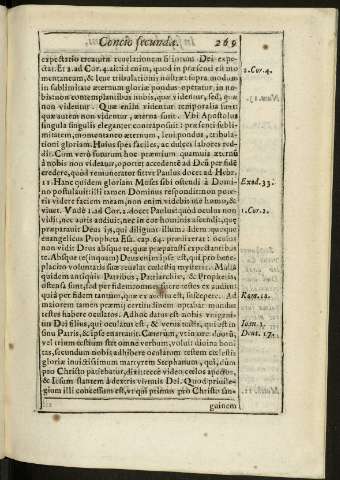 Concio secunda. 269
expectatio creaturæ reuelationem filiorum Dei expe-
ctat. Et 2. ad Cor. 4. dicit enim, quod in præsenti est mo
mentaneum, & leue tribulationis nostræ supra modum
in sublimitate æternum gloriæ pondus operatur, in no-
bis non contemplantibus nobis, quæ videntur, sed, quæ
non videntur. Quæ enim videntur temporalia sunt:
quæ autem non videntur, æterna sunt. Vbi Apostolus
singula singulis eleganter contraposuit: præsenti subli-
mitatem, momentaneo æternum, leui pondus, tribula-
tioni gloriam. Huius spes faciles, ac dulces labores red-
dit. Cum verò futurum hoc præmium quamuis æternũ
à nobis non videatur, oportet accedentẽ ad Deũ per fidẽ
credere, quod remunerator sit vt Paulus docet ad Hebr.
11. Hanc quidem gloriam Moses sibi ostendi à Domi-
no postulauit: illi tamen Dominus respondit: non pote-
ris videre faciem meam, non enim videbit me homo, &
viuet. Vndè 1. ad Cor. 2. docet Paulus: quod oculus non
vidit, nec auris audiuit, nec in cor hominis ascendit, quæ
præparauit Deus ijs, qui diligunt illum. Idem quoque
euangelicus Propheta Esa. cap. 64. prædixerat: oculus
non vidit Deus absque te, quæ præparasti expectantibus
te. Absque te (inquam) Deus enim ipse est, qui pro bene-
placito voluntatis suæ reuelat cœlestia mysteria.
quidem antiquis Patribus, Patriarchis, & Prophetis,
ostensa sunt, sed per fidem:
quia per fidem tantum, quæ ex auditu est, suscepere. Ad
maiorem tamen præmij certitudinem opratbat mundus
testes habere oculatos. Adhoc datus est nobis vnigeni-
tus Dei filius, qui oculatus est, & verus testis, qui est in
sinu Patris, & ipse enarrauit. Cæterum, vt in ore duorũ,
vel trium testium stet omne verbum, voluit diuina boni
tas, secundum nobis adhibere ocularum testem cœlestis
gloriæ inuictissimum martyrem Stephanum, qui, cum
pro Christo pateretur, dixit ecce video cœlos apertos,
& Iesum stantem à dextris virtutis Dei. Quod priuile-
gium illi concessum est, vt qui primus pro Christo san-
guinem
2. Cor. 4.
Exod. 33.
1. Cor. 2.
Rom. 10.
Ioan. 1.
Deut. 17.